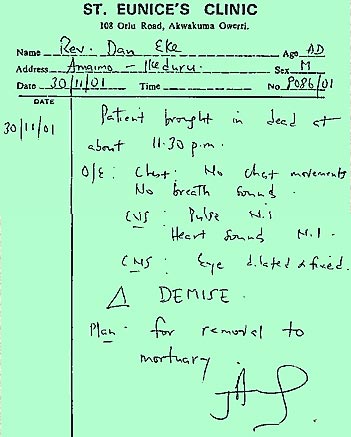 ST. EUNICE'S CLINIC
108 Orlu Road, Akwakuma Owerri.
Name Rev. Dan Eke Age AD
Address Amaimo - Ikeduru. Sex M
Date 30/11/01 Time No P086/01
DATE
30/11/01 Patient brought in dead at
about 11.30 p.m.
O/E: Chest: No chest movements
No breath sound.
CVS: Pulse Nil
Heart Sound Nil.
CNS: Eye dilated & fixed.
Δ DEMISE.
Plan: for removal to
mortuary